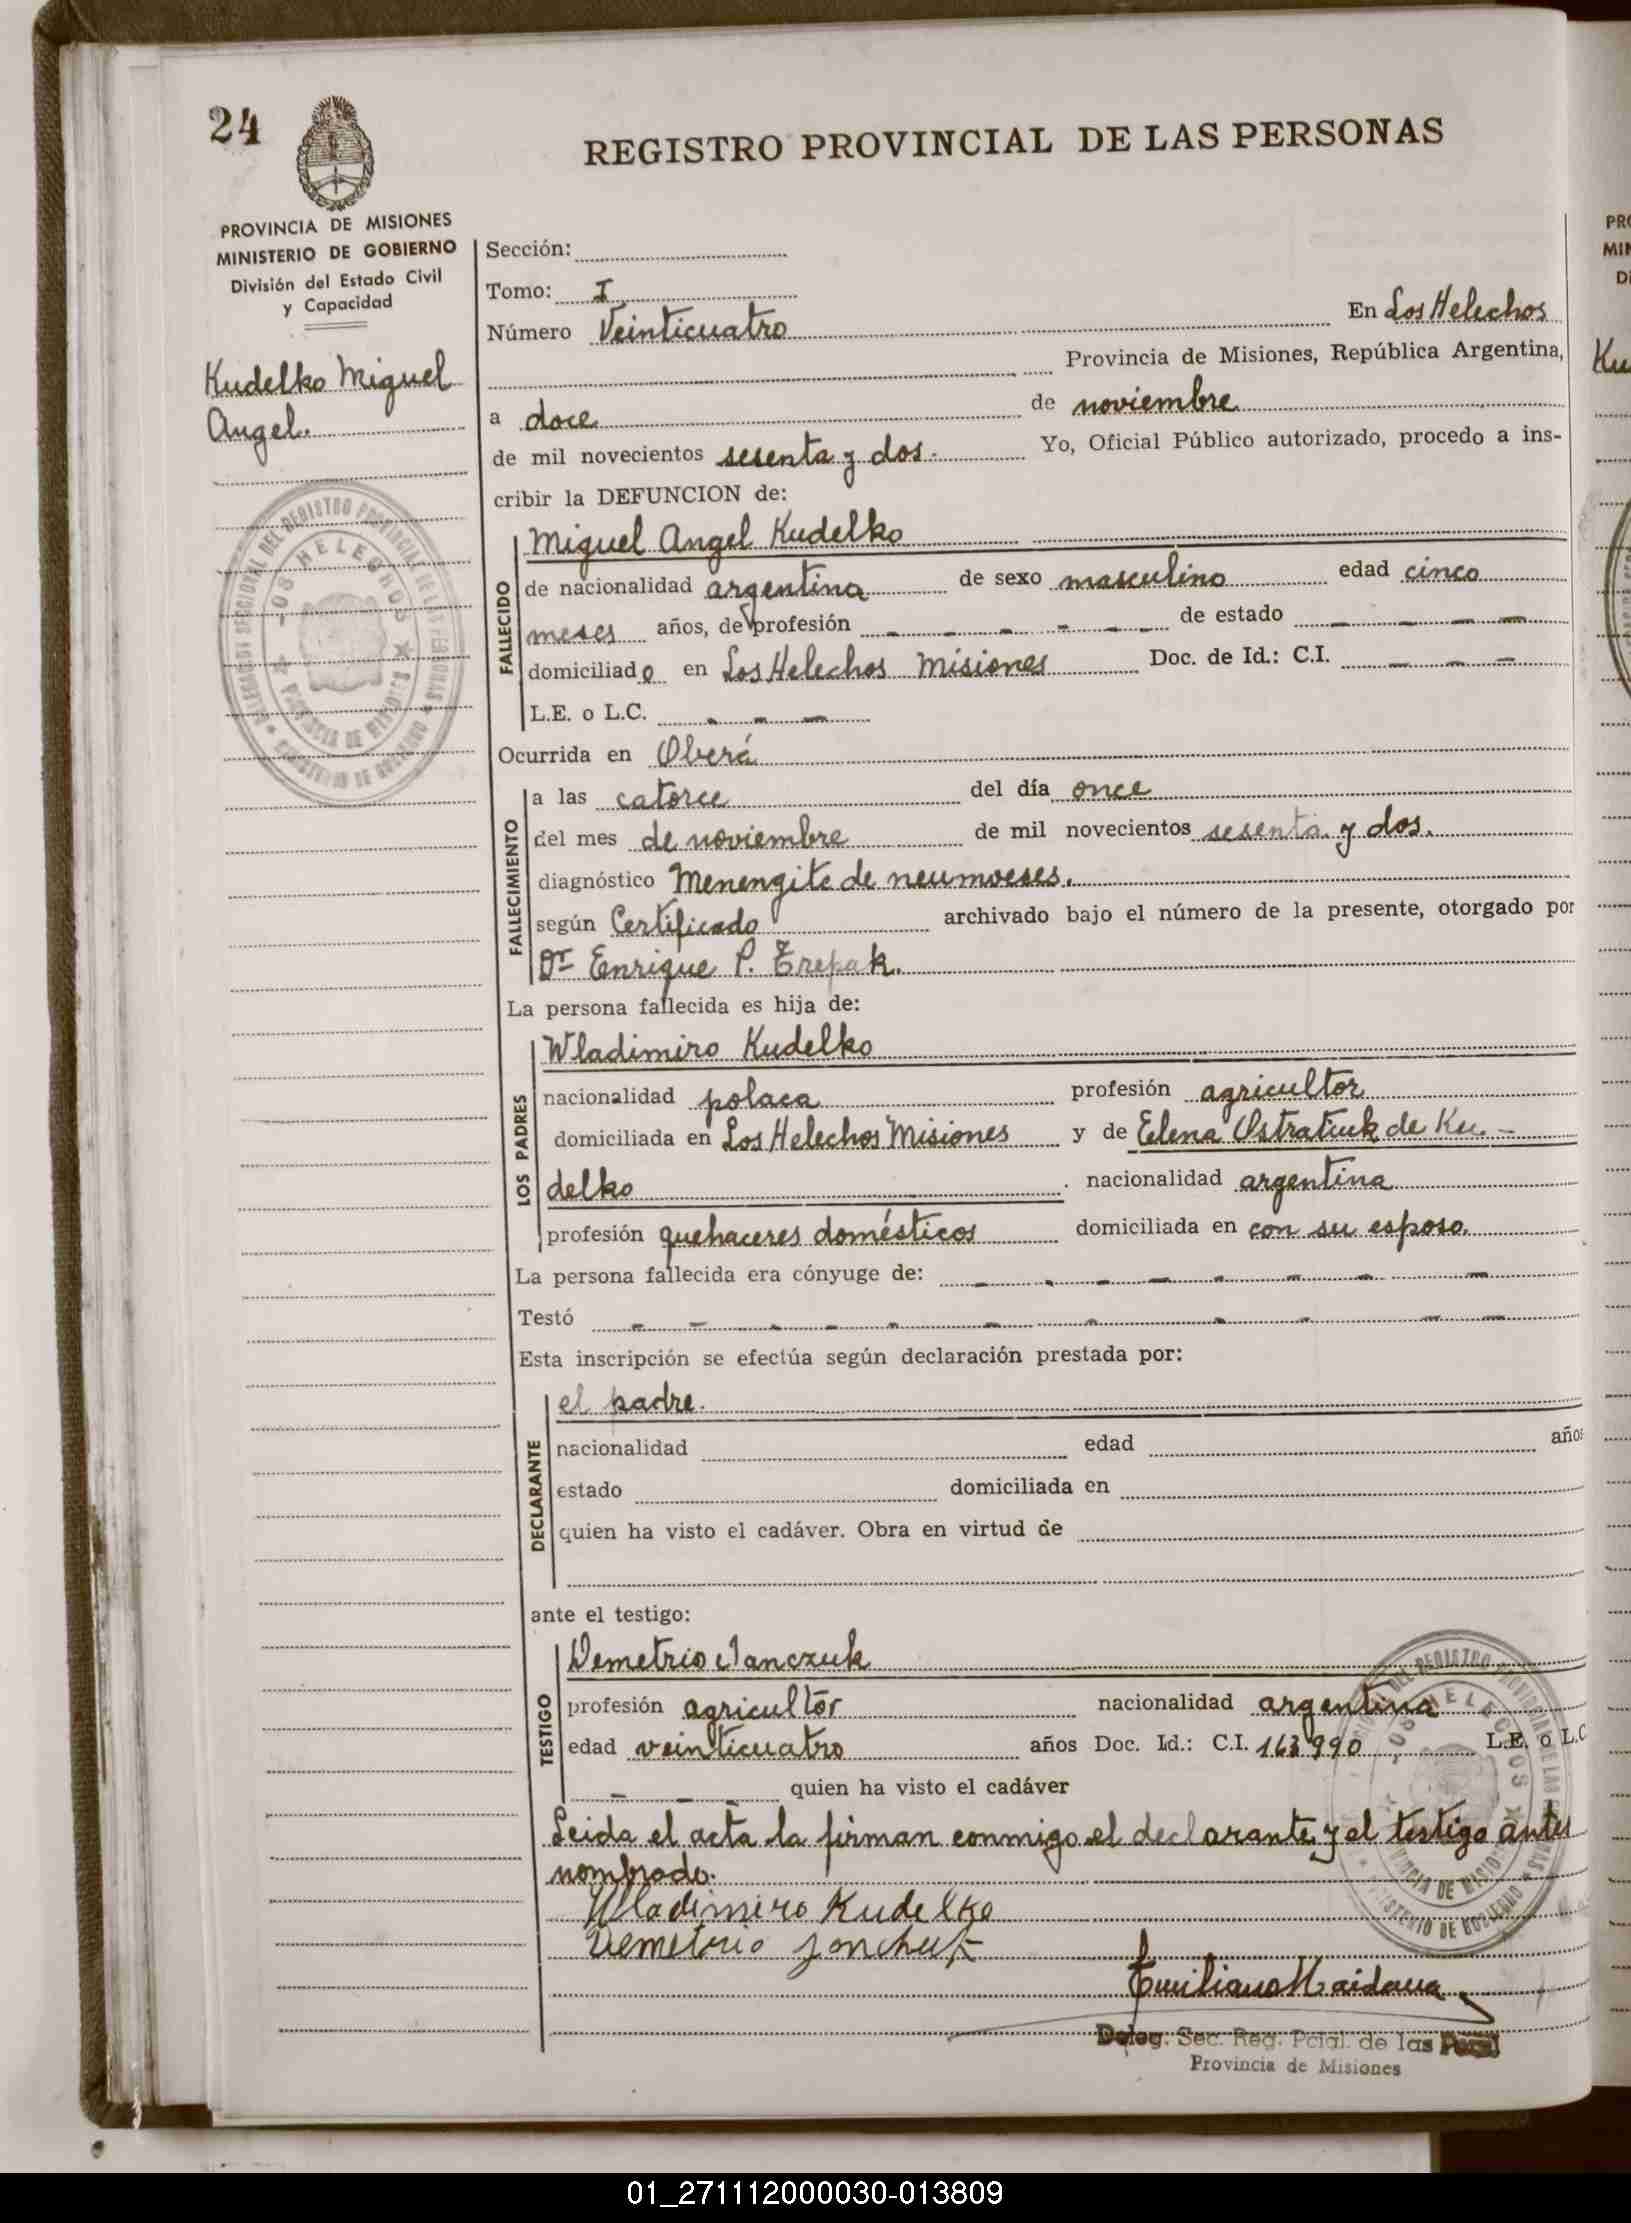 24
REGISTRO PROVINCIAL DE LAS PERSONAS
PROVINCIA DE MISIONES
MINISTERIO DE GOBIERNO
División del Estado Civil
y Capacidad
Kudelko Miguel
Angel.
Sección:
Tomo: I
Número Veinticuatro En Los Helechos
Provincia de Misiones, República Argentina,
a doce de noviembre
de mil novecientos sesenta y dos. Yo, Oficial Público autorizado, procedo a ins-
cribir la DEFUNCION de:
FALLECIDO
Miguel Angel Kudelko
de nacionalidad argentina de sexo masculino edad cinco
meses años, de profesión - - - - - de estado - - - -
domiciliado en Los Helechos Misiones Doc. de Id.: C.I. - - -
L.E. o L.C. - - -
Ocurrida en Oberá
FALLECIMIENTO
a las catorce del día once
del mes de noviembre de mil novecientos sesenta y dos.
diagnóstico Menengite de neumoeses.
según Certificado archivado bajo el número de la presente, otorgado por
Dr Enrique P. Trepak.
La persona fallecida es hija de:
LOS PADRES
Wladimiro Kudelko
nacionalidad polaca profesión agricultor
domiciliada en Los Helechos Misiones y de Elena Ostratiuk de Ku. -
delko nacionalidad argentina
profesión quehaceres domésticos domiciliada en con su esposo.
La persona fallecida era cónyuge de: - - - - - - - -
Testó - - - - - - - - - - -
Esta inscripción se efectúa según declaración prestada por:
DECLARANTE
el padre.
nacionalidad edad años
estado domiciliada en
quien ha visto el cadáver. Obra en virtud de
ante el testigo:
TESTIGO
Demetrio Janczuk
profesión agricultor nacionalidad argentina
edad veinticuatro años Doc. Id.: C.I. 163990 L.E. o L.C
- - - quien ha visto el cadáver
Leida el acta la firman conmigo el declarante y el testigo antes
nombrado.
Wladimiro Kudelko
Demetrio Jonchuk
Emiliano Maidana
Deleg. Sec. Reg. Pcial. de las Pers.
Provincia de Misiones
01_271112000030-013809